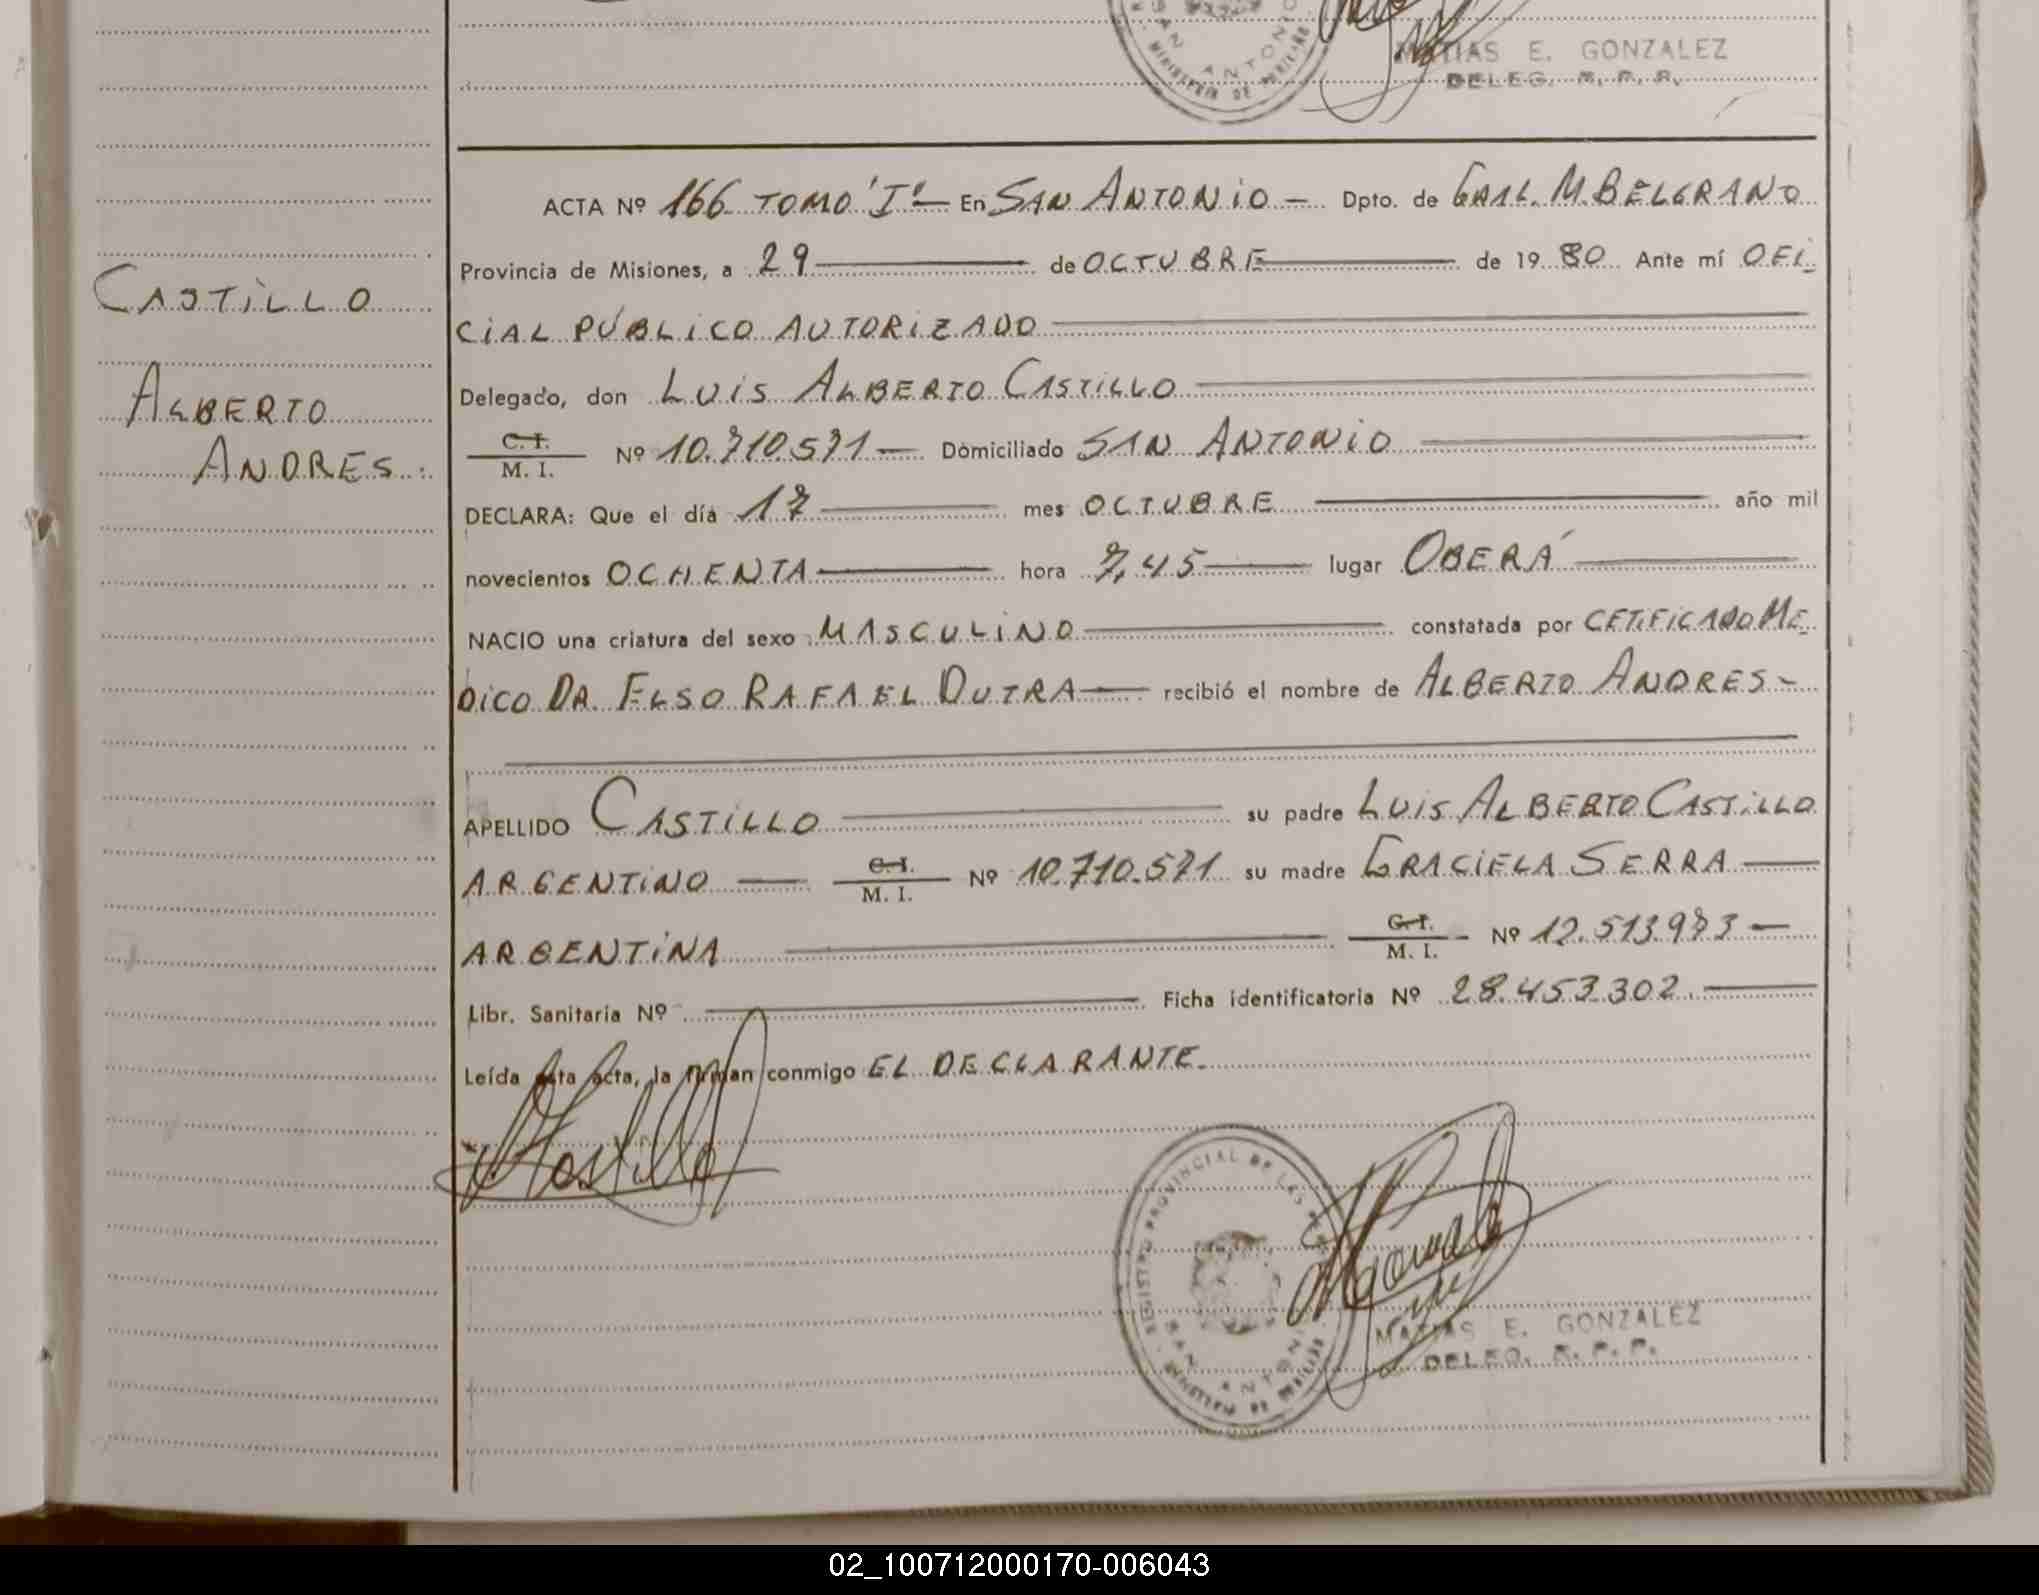 MATIAS E. GONZALEZ
DELEG. R. P. P.
ACTA Nº 166 TOMO "I" — En SAN ANTONIO — Dpto. de GRAL. M. BELGRANO
Provincia de Misiones, a 29 de OCTUBRE de 1980 Ante mí OFI
CIAL PÚBLICO AUTORIZADO
CASTILLO
Delegado, don LUIS ALBERTO CASTILLO
ALBERTO
C. I.
M. I. Nº 10.710.571 — Domiciliado SAN ANTONIO
ANDRES
DECLARA: Que el día 17 mes OCTUBRE año mil
novecientos OCHENTA hora 7,45 lugar OBERÁ
NACIO una criatura del sexo MASCULINO constatada por CETIFICADO ME
DICO DR. ELSO RAFAEL DUTRA recibió el nombre de ALBERTO ANDRES -
APELLIDO CASTILLO su padre LUIS ALBERTO CASTILLO
ARGENTINO — C. I.
M. I. Nº 10.710.571 su madre GRACIELA SERRA
ARGENTINA C. I.
M. I. Nº 12.513.973 —
Libr. Sanitaria Nº Ficha identificatoria Nº 28.453.302
Leída esta acta, la firman conmigo EL DECLARANTE.
REGISTRO PROVINCIAL DE LAS
SAN ANTONIO
MATIAS E. GONZALEZ
DELEG. R. P. P.
02_100712000170-006043